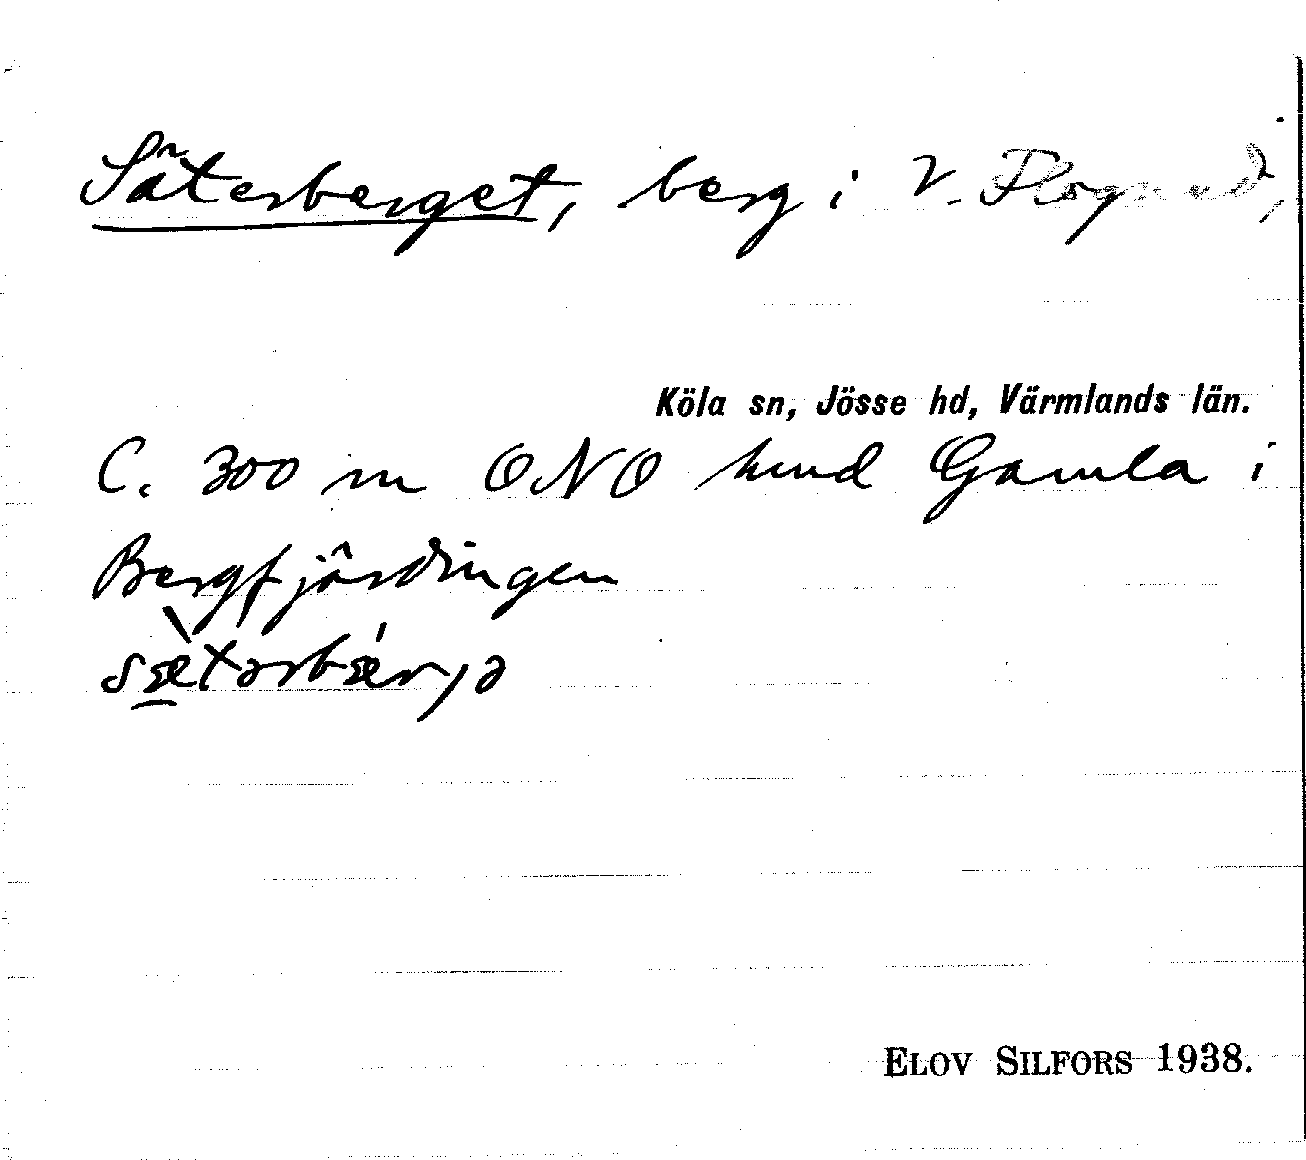 Säterberget, berg i V. Flogned,
Köla sn, Jösse hd, Värmlands län.
C. 300 m ONO hmd Gamla i
Bergfjärdingen
sæ̀tərbǽrjə
ELOV SILFORS 1938.